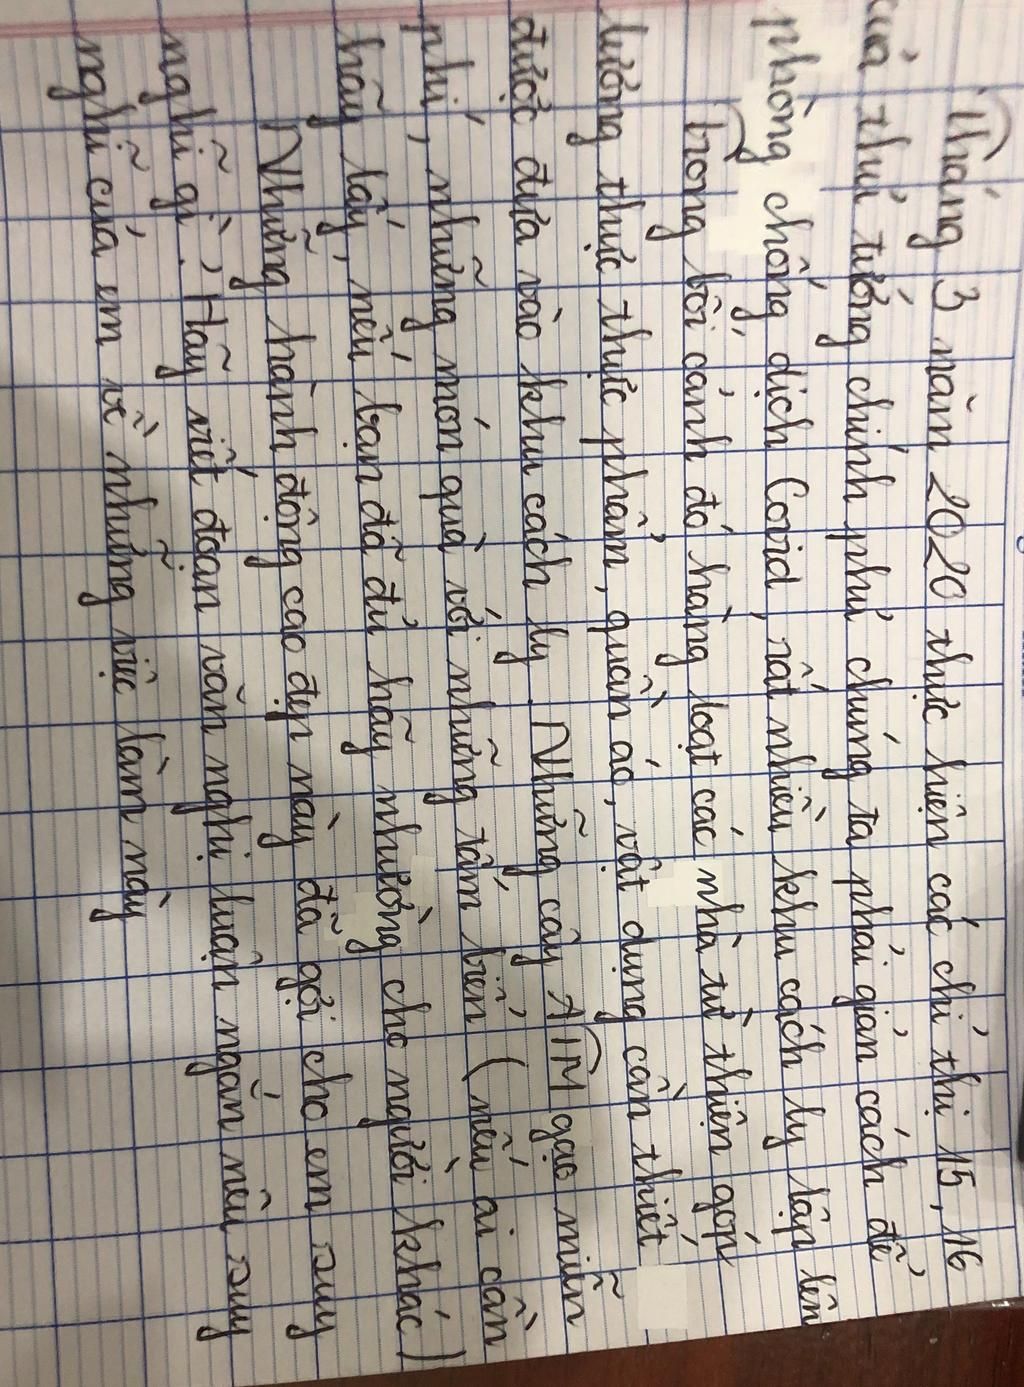 Tháng 3 năm 2020 thực hiện các chỉ thị 15, 16
của thủ tướng chính phủ chúng ta phải giản cách để
phòng chống dịch Covid, rất nhiều khu cách ly lập lên
Trong bối cảnh đó hàng loạt các nhà từ thiện góp
lương thực thực phẩm, quần áo, vật dụng cần thiết
được đưa vào khu cách ly. Những cây ATM gạo miễn
phí, những món quà với những tấm biển (nếu ai cần
hãy lấy, nếu bạn đã đủ hãy nhường cho người khác)
Những hành động cao đẹp này đã gợi cho em suy
nghĩ gì, Hãy viết đoạn văn nghị luận ngắn nêu suy
nghĩ của em về những việc làm này